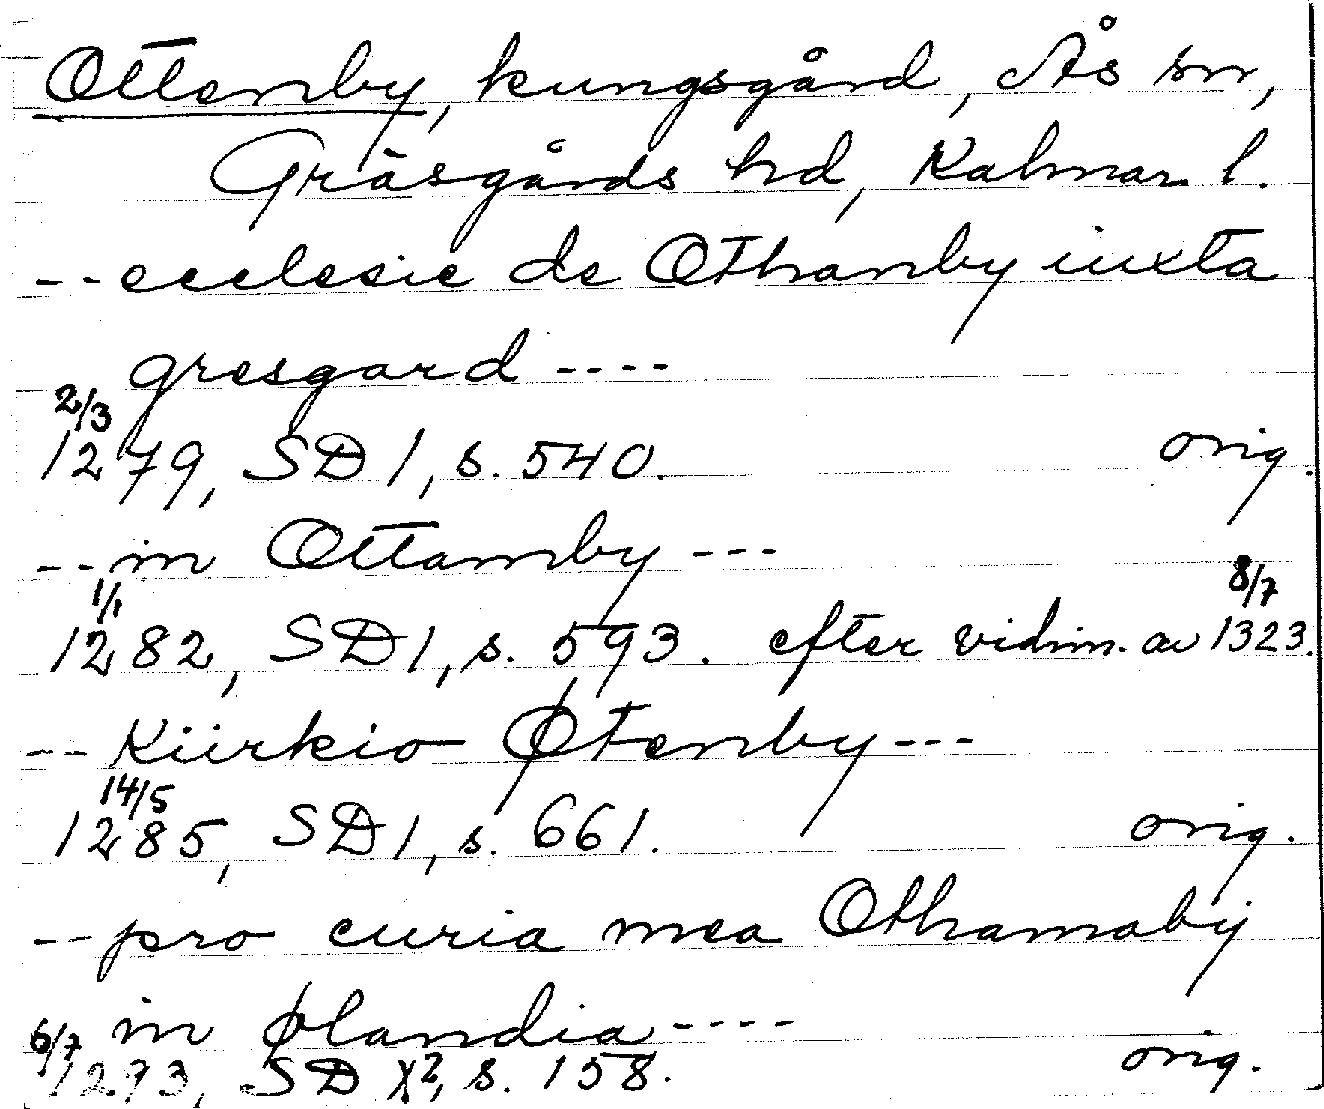 Ottenby, kungsgård, Ås sn,
Gräsgårds hd, Kalmar l.
-- ecclesie de Othanby iuxta
gresgard ----
2/3
1279, SD 1, s. 540. orig.
-- in Ottamby ---
1/1 8/7
1282, SD 1, s. 593. efter vidim. av 1323.
-- Kiirkio Øtenby ---
14/5
1285, SD 1, s. 661. orig.
-- pro curia mea Othamaby
in ølandia ----
6/7
1293, SD X², s. 158. orig.